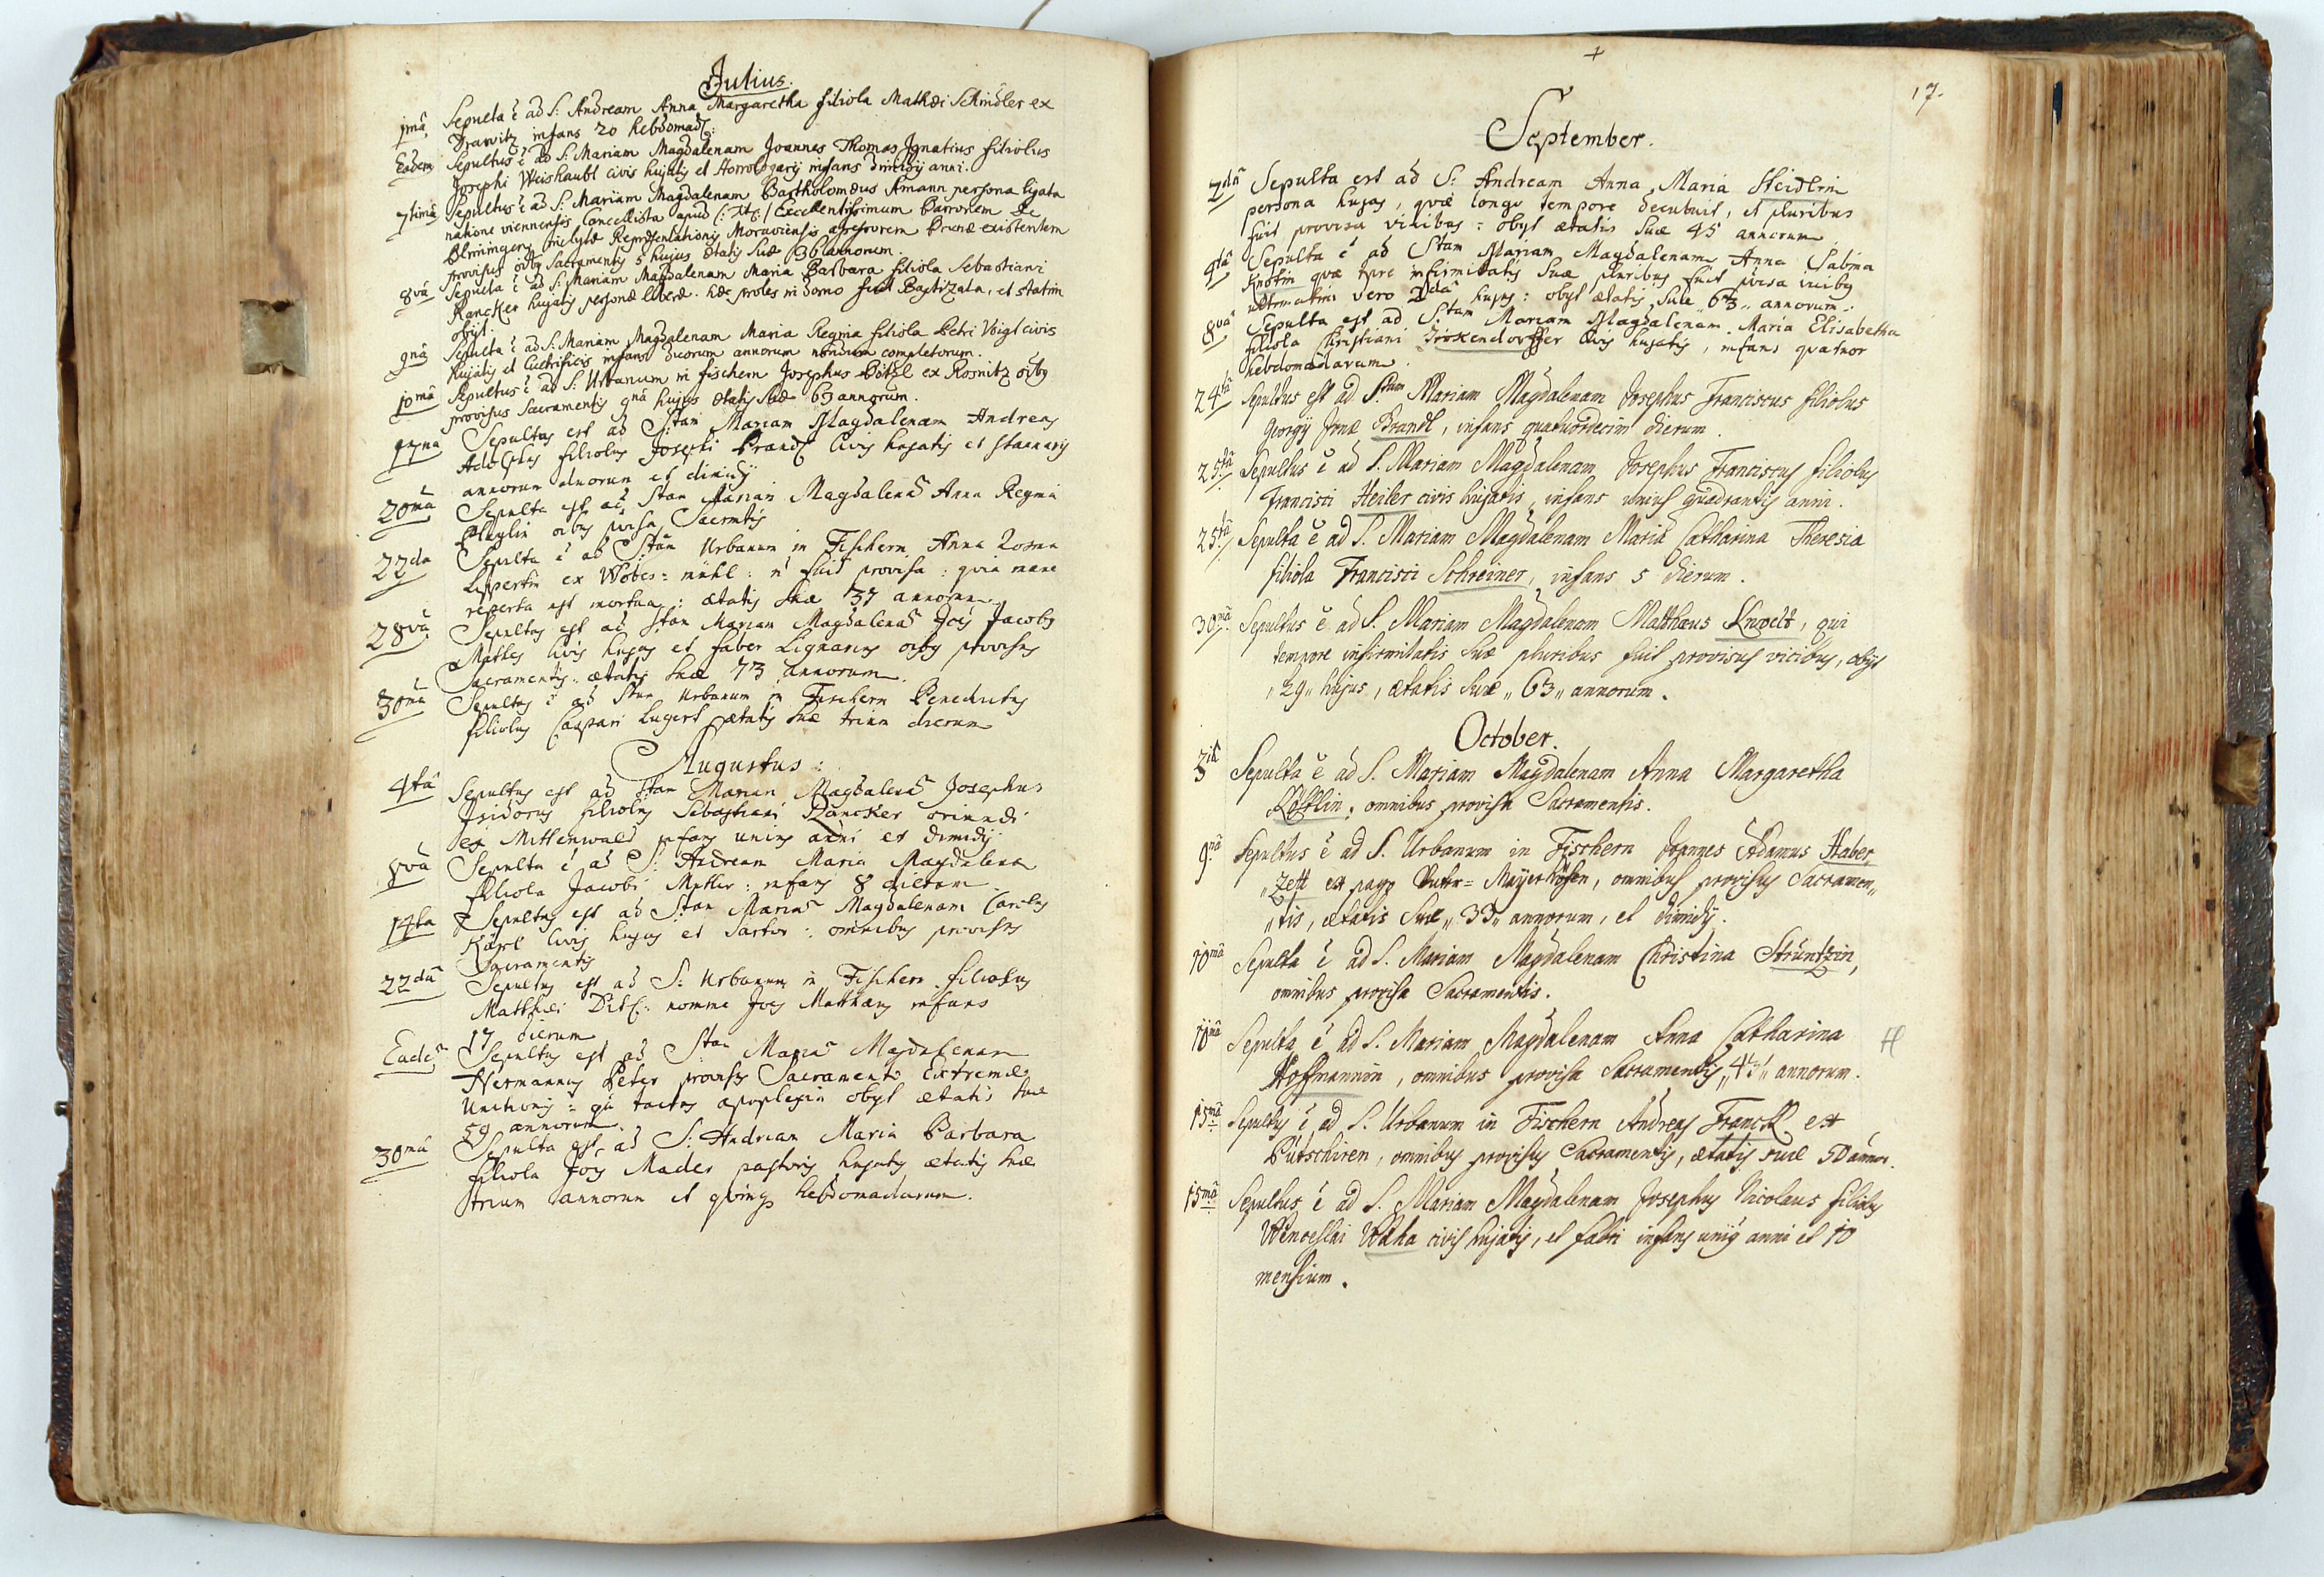 Julius.
1mâ Sepulta ẽ ad S: Andream Anna Margaretha filiola Mathæi Schindler ex
infans 20 hebdomad:
Eadem Sepultus ẽ ad S: Mariam Magdalenam Joannes Thomas Ignatius filiolus
Josephi Weishaubt civis hujatis et infans dimidij anni.
7timâ Sepultus ẽ ad S: Mariam Magdalenam Bartholomæus Amann persona ligata
natione viennensis Cancellista apud (: Ttl: / Excellentissimum Baronem de
Blimingen Repræsentationis Moraviensis Brunæ existentem
provisus oibus Sacramentis 5 hujus ætatis suæ 36 annorum.
8vâ Sepulta ẽ ad S: Mariam Magdalenam Maria Barbara filiola Sebastiani
Rancker hujatis personæ liberæ. hæc proles in domo fuit Baptizata, et statim
obijt.
9nâ Sepulta ẽ ad S: Mariam Magdalenam Maria Regina filiola Petri Voigt civis
hujatis et Cultrificis infans duorum annorum nondum completorum.
10mâ Sepultus ẽ ad S: Urbanum in fischern Josephus ex Rosnitz oibus
provisus Sacramentis 9nâ hujus ætatis suæ 63 annorum.
Sepultus est ad Stam Mariam Magdalenam Andreas
Adolphus filiolus Josephi Brandl Civis hujatis et stannarij
annorum duorum et dimidij
20mâ Sepulta est ad Stam Mariam Magdalenã Anna Regina
oibus Sacrmtis
22da Sepulta ẽ ad Stum Urbanum in Fischern Anna Rosina
Lippertin ex mühl: ñ fuit provisa: quia mane
reperta est mortua: ætatis suæ 37 annorum
28vâ Sepultus est ad Stam Mariam Magdalenã Jois Jacobus
civis hujas et faber Lignarius oibus provisus
Sacramentis. ætatis suæ 73 annorum.
30mâ Sepultus ẽ ad Stum Urbanum in Fischern Benedictus
filiolus Caspari Lugert ætatis suæ trium dierum
Augustus:
4tâ Sepultus est ad Stam Mariam Magdalenã Josephus
Isidorus filiolus Sebastiani Rancker oriundi
ex Mittenwald infans unius anni et dimidij
8vâ Sepulta ẽ ad S: Andream Maria Magdalena
filiola Jacobi infans 8 dierum
14ta Sepultus est ad Stam Mariã Magdalenam Carolus
Kärl Civis hujas et sartor: omnibus provisus
Sacramentis
22dâ Sepultus est ad S: Urbanum in Fischern filiolus
Matthæi nomine Joes Matthæus infans
17 dierum
Eadẽ Sepultus est ad Stam Mariã Magdalenam
Hermannus Peter provisus Sacramento Extremæ
Unctionis: tactus apoplexia obijt ætatis suæ
59 annorum.
30mâ Sepulta est ad S: Andream Maria Barbara
filiola Jois Mader pastoris hujatis ætatis suæ
trium annorum et quinque hebdomadarum.
17.
September.
2dâ Sepulta est ad S: Andream Anna Maria Heidlin
persona hujas, quæ longo tempore decubuit, et pluribus
fuit provisa vicibus: obijt ætatis suæ 45 annorum
4tâ Sepulta ẽ ad Stam Mariam Magdalenam Anna Sabina
Knottin quæ tpre infirmitatis suæ pluribus fuit pvisa vicibus
vero 2dâ hujus: obijt ætatis suæ 63 annorum.
8vâ Sepulta est ad Stam Mariam Magdalenam Maria Elisabetha
filiola Christiani Civis hujatis, infans quatuor
hebdomadarum.
24tâ Sepultus est ad Stam Mariam Magdalenam Josephus Franciscus filiolus
Georgij Brandl, infans quatuordecim dierum.
25tâ Sepultus ẽ ad S. Mariam Magdalenam Josephus Franciscus filiolus
Francisci Heiler civis hujatis, infans unius quadrantis anni.
25tâ Sepulta ẽ ad S. Mariam Magdalenam Maria Catharina Theresia
filiola Francisci Schreiner, infans 5 dierum.
30mâ Sepultus ẽ ad S. Mariam Magdalenam Matthæus Knodt, qui
tempore infirmitatis suæ pluribus fuit provisus vicibus, obijt
29 hujus, ætatis suæ „63„ annorum.
October.
3iâ Sepulta ẽ ad S. Mariam Magdalenam Anna Margaretha
omnibus provisa Sacramentis.
9nâ Sepultus ẽ ad S. Urbanum in Fischern Joannes Adamus Haber„
„zett ex pago Unter= Mayerhöfen, omnibus provisus Sacramen„
„tis, ætatis suæ „33„ annorum, et dimidij.
10mâ Sepulta ẽ ad S. Mariam Magdalenam Christina Strüntzin,
omnibus provisa Sacramentis.
10mâ Sepulta ẽ ad S. Mariam Magdalenam Anna Catharina H
Hoffmannin, omnibus provisa Sacramentis, annorum.
15mâ Sepultus ẽ ad S. Urbanum in Fischern Andreas Franckl ex
Pútschiren, omnibus provisus Sacramentis, ætatis suæ 50 annor.
15mâ Sepultus ẽ ad S. Mariam Magdalenam Josephus Nicolaus filiolus
Wenceslai Waha civis hujatis, et fabri infans unius anni et 10
mensium.